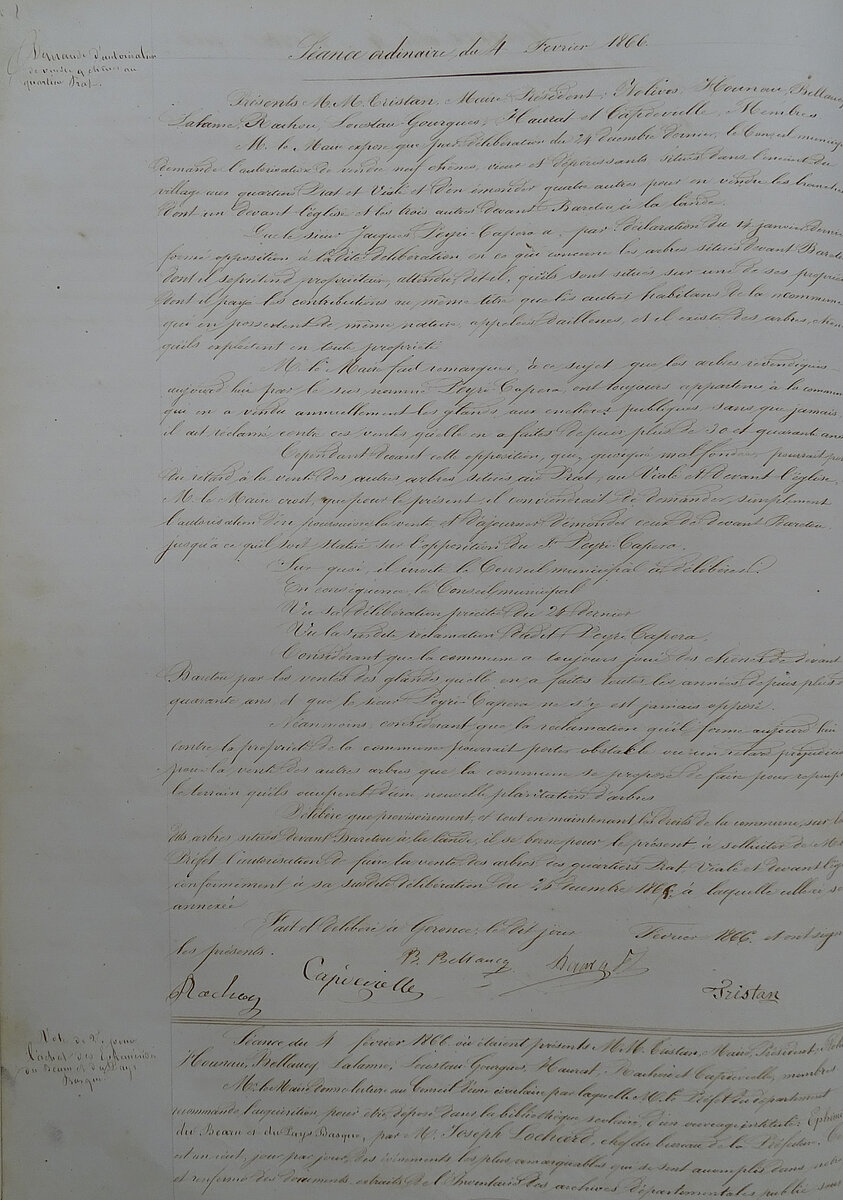 Demande d'autorisation
de vendre 9 chênes au
quartier Prat.
Séance ordinaire du 4 Fevrier 1866.
Présents M.M. Tristan, Maire, Président; Hounau, Bellaucq
Lalanne, Rachou, Loustau Gourgues, Haurat et Capdevielle, Membres
M. le Maire expose que par délibération du 24 decembre dernier, le Conseil municip
demande l'autorisation de vendre neuf chênes vieux et dépérissants situés dans l'enceinte du
village aux quartiers Prat et Vialé et d'en émonder quatre autres pour en vendre les branches
dont un devant l'église et les trois autres devant Bardou à la lande.
Que le sieur Jacques Peyri-Capera a, par déclaration du 14 janvier dernier
formé opposition à ladite délibération en ce qui concerne les arbres situés devant Bardou
dont il se prétend propriétaire, attendu, dit-il, qu'ils sont situés sur une de ses propriétés
dont il paye les contributions au même titre que les autres habitans de la commune
qui en possèdent de même nature, appelées et il existe des arbres
qu'ils exploitent en toute propriété
M. le Maire fait remarquer, à ce sujet, que les arbres revendiqués
aujourd'hui par le sus nommé Peyri-Capera, ont toujours appartenu à la commune
qui en a vendu annuellement les glands aux enchères publiques, sans que jamais
il ait réclamé contre ces ventes qu'elle en a faites depuis plus de 30 et quarante ans
Cependant devant cette opposition, que, quoique mal fondée, pourrait
du retard à la vente des autres arbres situés au Prat, au Vialé et devant l'église,
M. le Maire croit, que pour le présent, il conviendrait de demander simplement
l'autorisation d'en poursuivre la vente et d'ajourner d'émonder ceux de devant Bardou
jusqu'à ce qu'il soit statué sur l'opposition du Sr. Peyri-Capera.
Sur quoi, il invite le Conseil municipal à délibérer.
En conséquence, le Conseil municipal
Vu sa délibération précitée du 24 dernier
Vu la susdite réclamation dudit Peyri-Capera,
Considérant que la commune a toujours joui des chênes de devant
Bardou par les ventes des glands qu'elle en a faites toutes les années depuis plus de
quarante ans, et que le sieur Peyri-Capera ne s'y est jamais opposé.
Néanmoins, considérant que la réclamation qu'il forme aujourd'hui
contre la propriété de la commune pourrait porter obstacle ou un retard préjudici
pour la vente des autres arbres que la commune se propose de faire pour
le terrain qu'ils occupent d'une nouvelle plantation d'arbres
Délibère que provisoirement, et tout en maintenant les droits de la commune, sur
dits arbres situés devant Bardou à la lande, il se borne pour le présent à solliciter de M. le
Préfet l'autorisation de faire la vente des arbres des quartiers Prat, Vialé et devant l'égl
conformément à sa susdite délibération du decembre à laquelle celle-ci s
annexée
Fait et délibéré à Geronce, le dit jour Fevrier 1866. et ont signé
les présents.
B. Bellaucq Haurat
Rachou Capdevielle Tristan
Vote de pour
l'achat des Ephémérides
du Bearn et du Pays
Basque
Séance du 4 février 1866 où étaient présents M.M. Tristan, Maire, Président,
Hounau, Bellaucq, Lalanne, Loustau Gourgues, Haurat, Rachou et Capdevielle, membres
M. le Maire donne lecture au Conseil d'une circulaire par laquelle M. le Préfet du département
recommande l'acquisition, pour être déposé dans la bibliothèque scolaire, d'un ouvrage intitulé: Ephémé
du Bearn et du Pays Basque, par Mr. Joseph chef du bureau de la Préfecture. C
est un récit, jour par jour, des évènements les plus remarquables qui se sont accomplis dans notre
et renferme des documents extraits de l'Inventaire des archives départementales publié sous